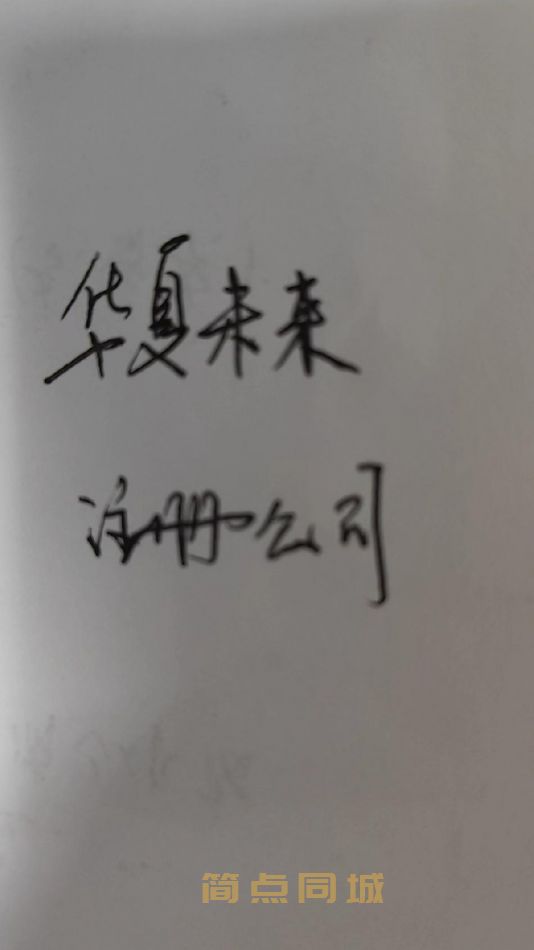 华夏未来
注册公司
简点同城